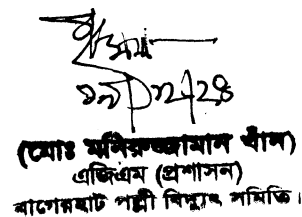 (মোঃ মনিরুজ্জামান খাঁন)
এজিএম (প্রশাসন)
বাগেরহাট পল্লী বিদ্যুৎ সমিতি।